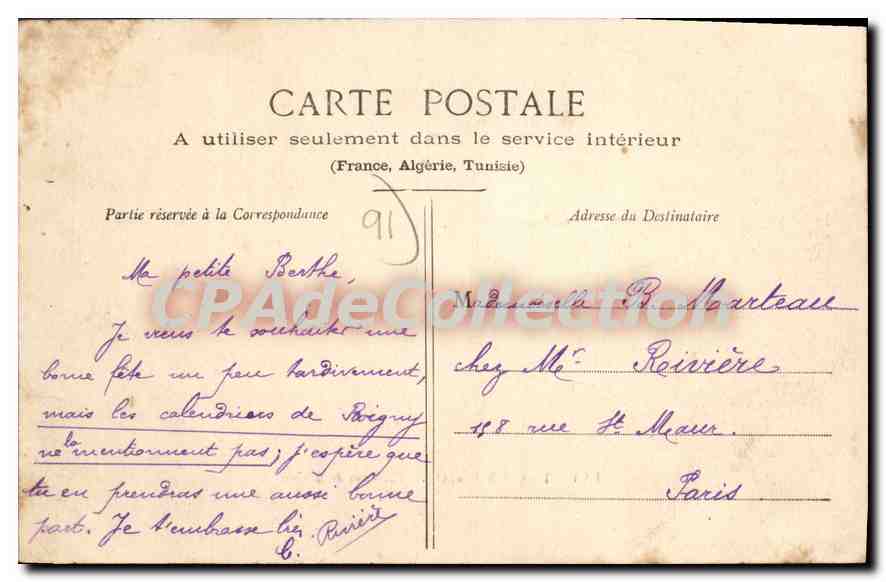 CARTE POSTALE
A utiliser seulement dans le service intérieur
(France, Algérie, Tunisie)
Partie réservée à la Correspondance
91
Ma petite Berthe,
Je viens te souhaiter une
bonne fête un peu tardivement,
mais les calendriers de Boigny
ne la mentionnent pas ; j'espère que
tu en prendras une aussi bonne
part. Je t'embrasse bien.
Rivière
Adresse du Destinataire
Mademoiselle B. Marteau
chez Mr. Rivière
rue St. Maur.
Paris
CPAdeCollection